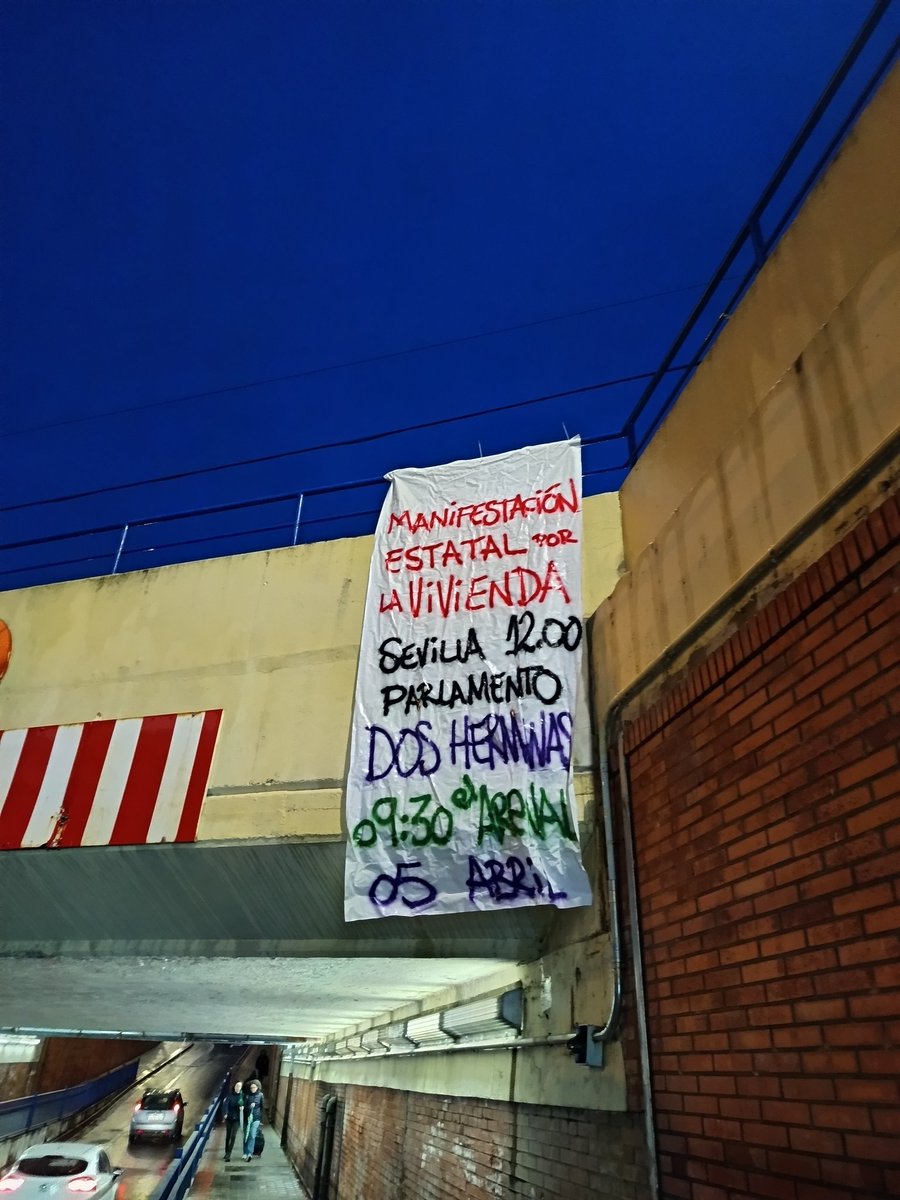 MANIFESTACIÓN
ESTATAL POR
LA VIVIENDA
SEVILLA 12.00
PARLAMENTO
DOS HERMNAS
09:30 el ARENAL
05 ABRIL